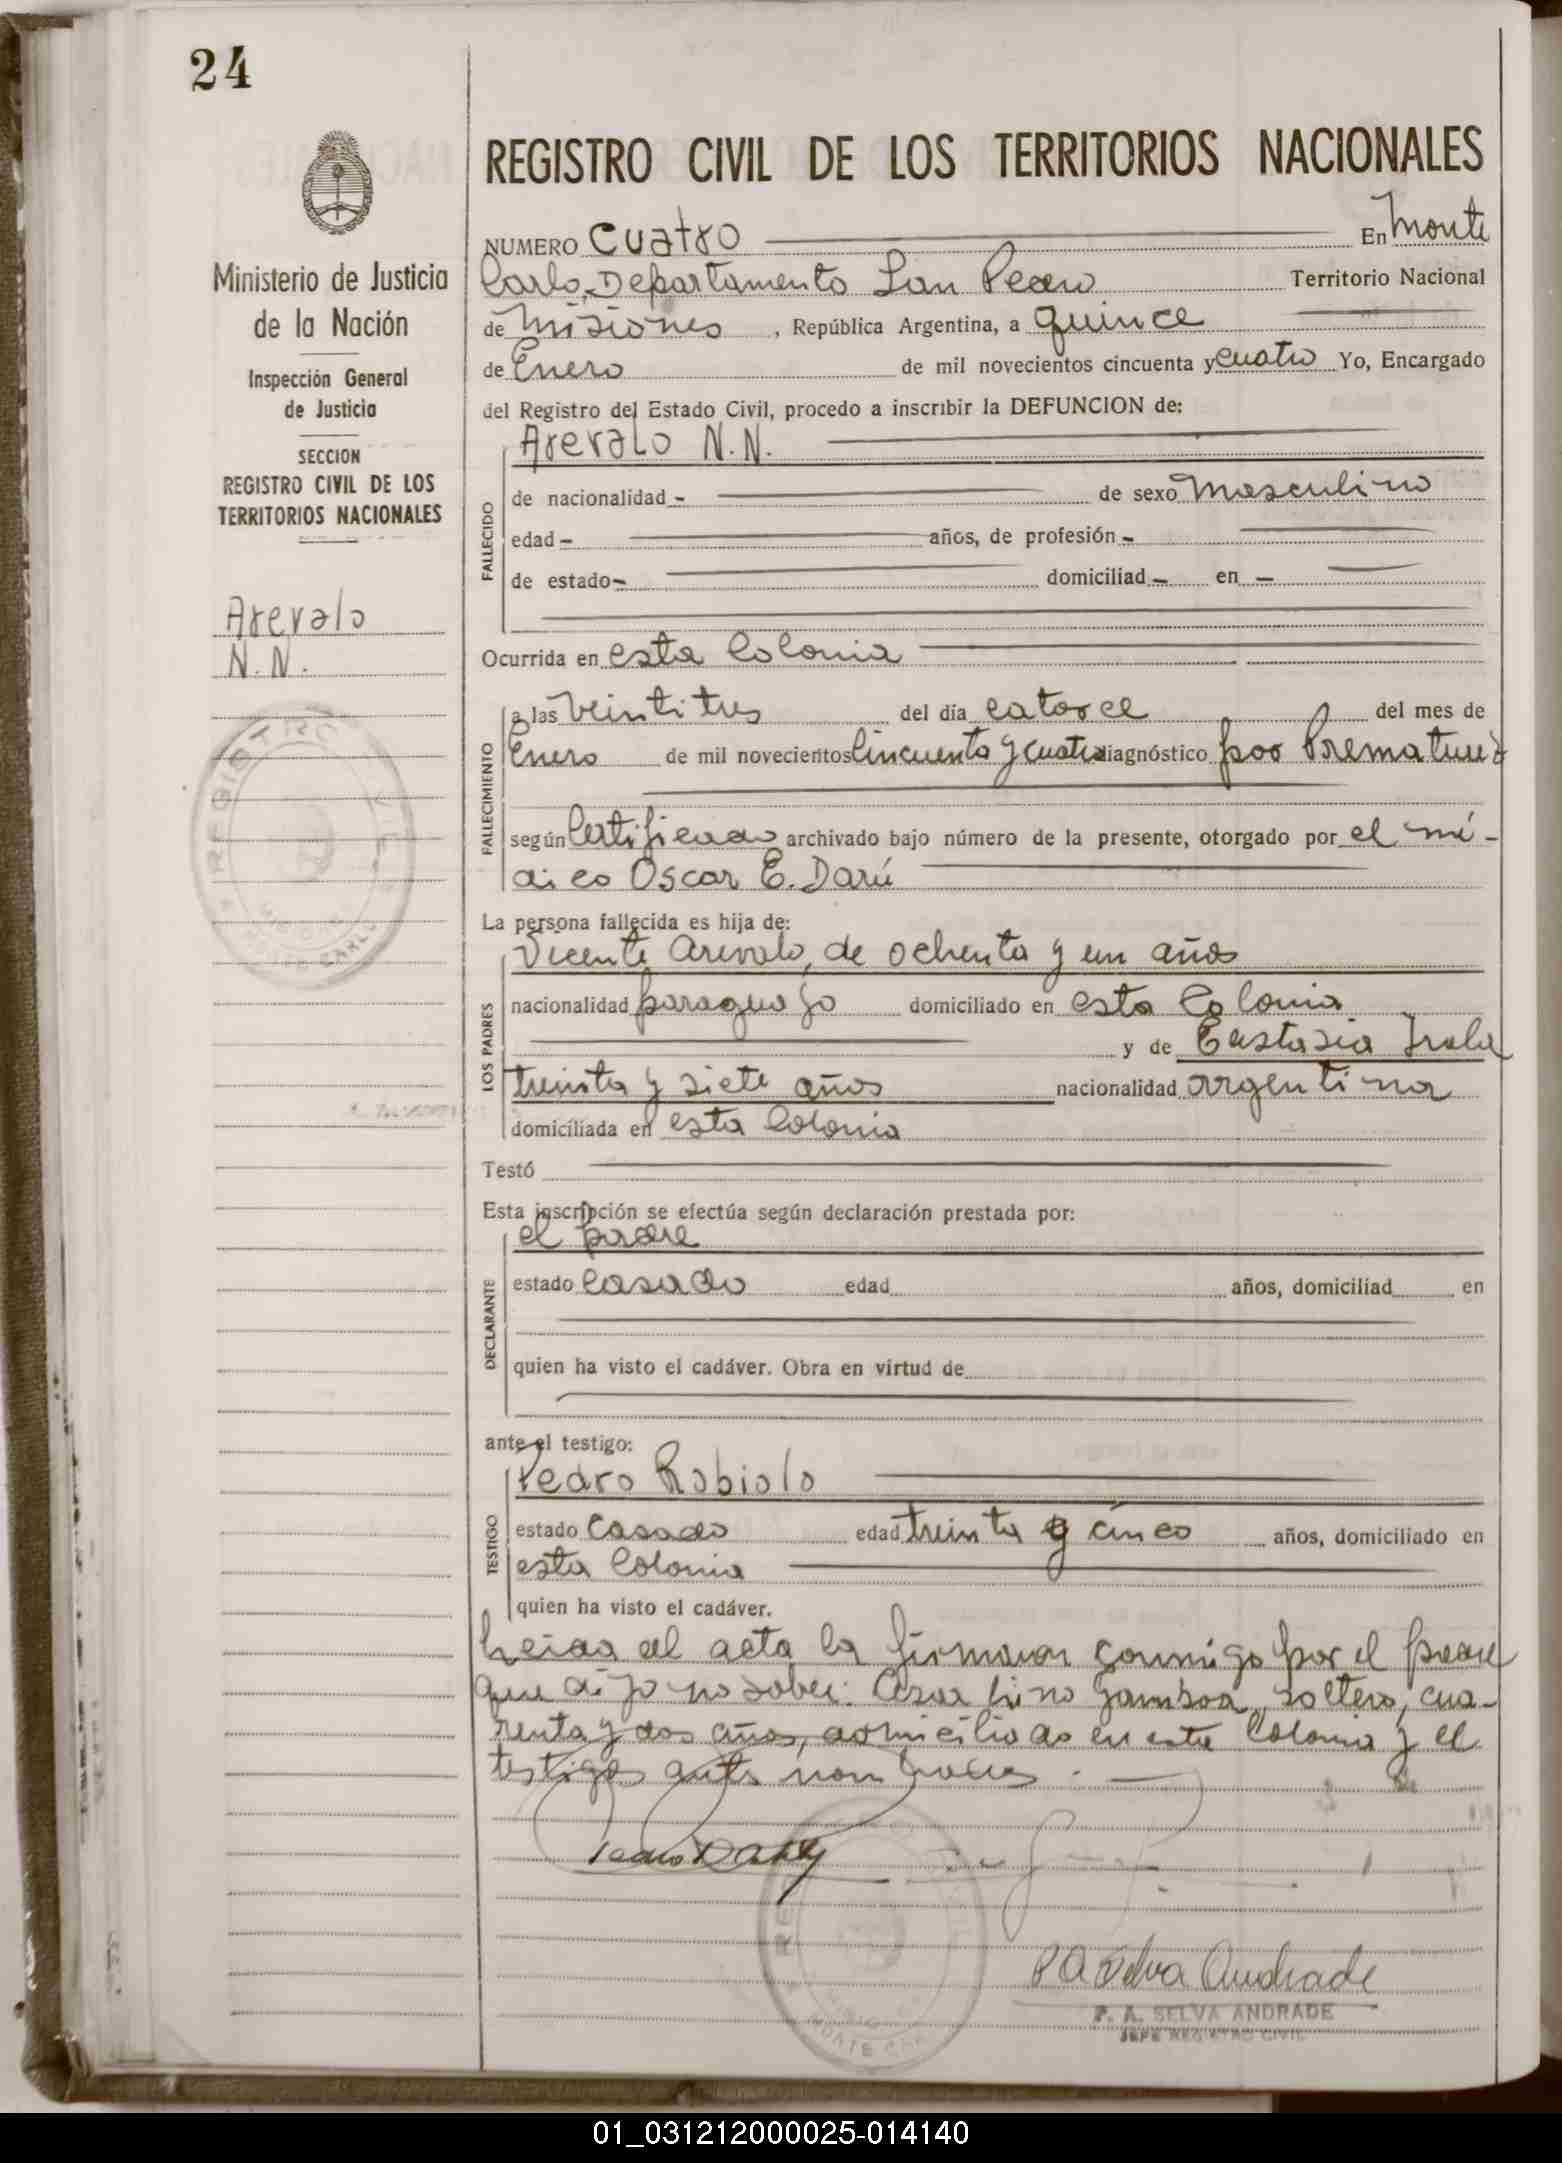 24
REGISTRO CIVIL DE LOS TERRITORIOS NACIONALES
Ministerio de Justicia
de la Nación
Inspección General
de Justicia
SECCION
REGISTRO CIVIL DE LOS
TERRITORIOS NACIONALES
Arevalo
N.N.
NUMERO Cuatro En Monte
Carlo, Departamento San Pedro Territorio Nacional
de Misiones, República Argentina, a quince
de Enero de mil novecientos cincuenta y cuatro Yo, Encargado
del Registro del Estado Civil, procedo a inscribir la DEFUNCION de:
Arevalo N.N.
FALLECIDO
de nacionalidad - de sexo Masculino
edad - años, de profesión -
de estado - domiciliad - en -
Ocurrida en esta Colonia
FALLECIMIENTO
a las Veintitres del día catorce del mes de
Enero de mil novecientos Cincuenta y cuatro diagnóstico por Prematuro
según Certificado archivado bajo número de la presente, otorgado por el mé-
dico Oscar E. Darú
La persona fallecida es hija de:
LOS PADRES
Vicente Arevalo, de ochenta y un años
nacionalidad paraguayo domiciliado en esta Colonia
y de Eustasia Irala
treinta y siete años nacionalidad argentina
domiciliada en esta Colonia
Testó
Esta inscripción se efectúa según declaración prestada por:
DECLARANTE
el padre
estado casado edad años, domiciliad en
quien ha visto el cadáver. Obra en virtud de
ante el testigo:
TESTIGO
Pedro Robiolo
estado casado edad treinta y cinco años, domiciliado en
esta Colonia
quien ha visto el cadáver.
Leida el acta la firmaron conmigo por el padre
que dijo no saber: Cesar Lino Gamboa, soltero, cua-
renta y dos años, domiciliado en esta Colonia y el
testigo antes
P A Selva Andrade
P. A. SELVA ANDRADE
JEFE REGISTRO CIVIL
REGISTRO CIVIL
MISIONES
MONTE CARLO
01_031212000025-014140